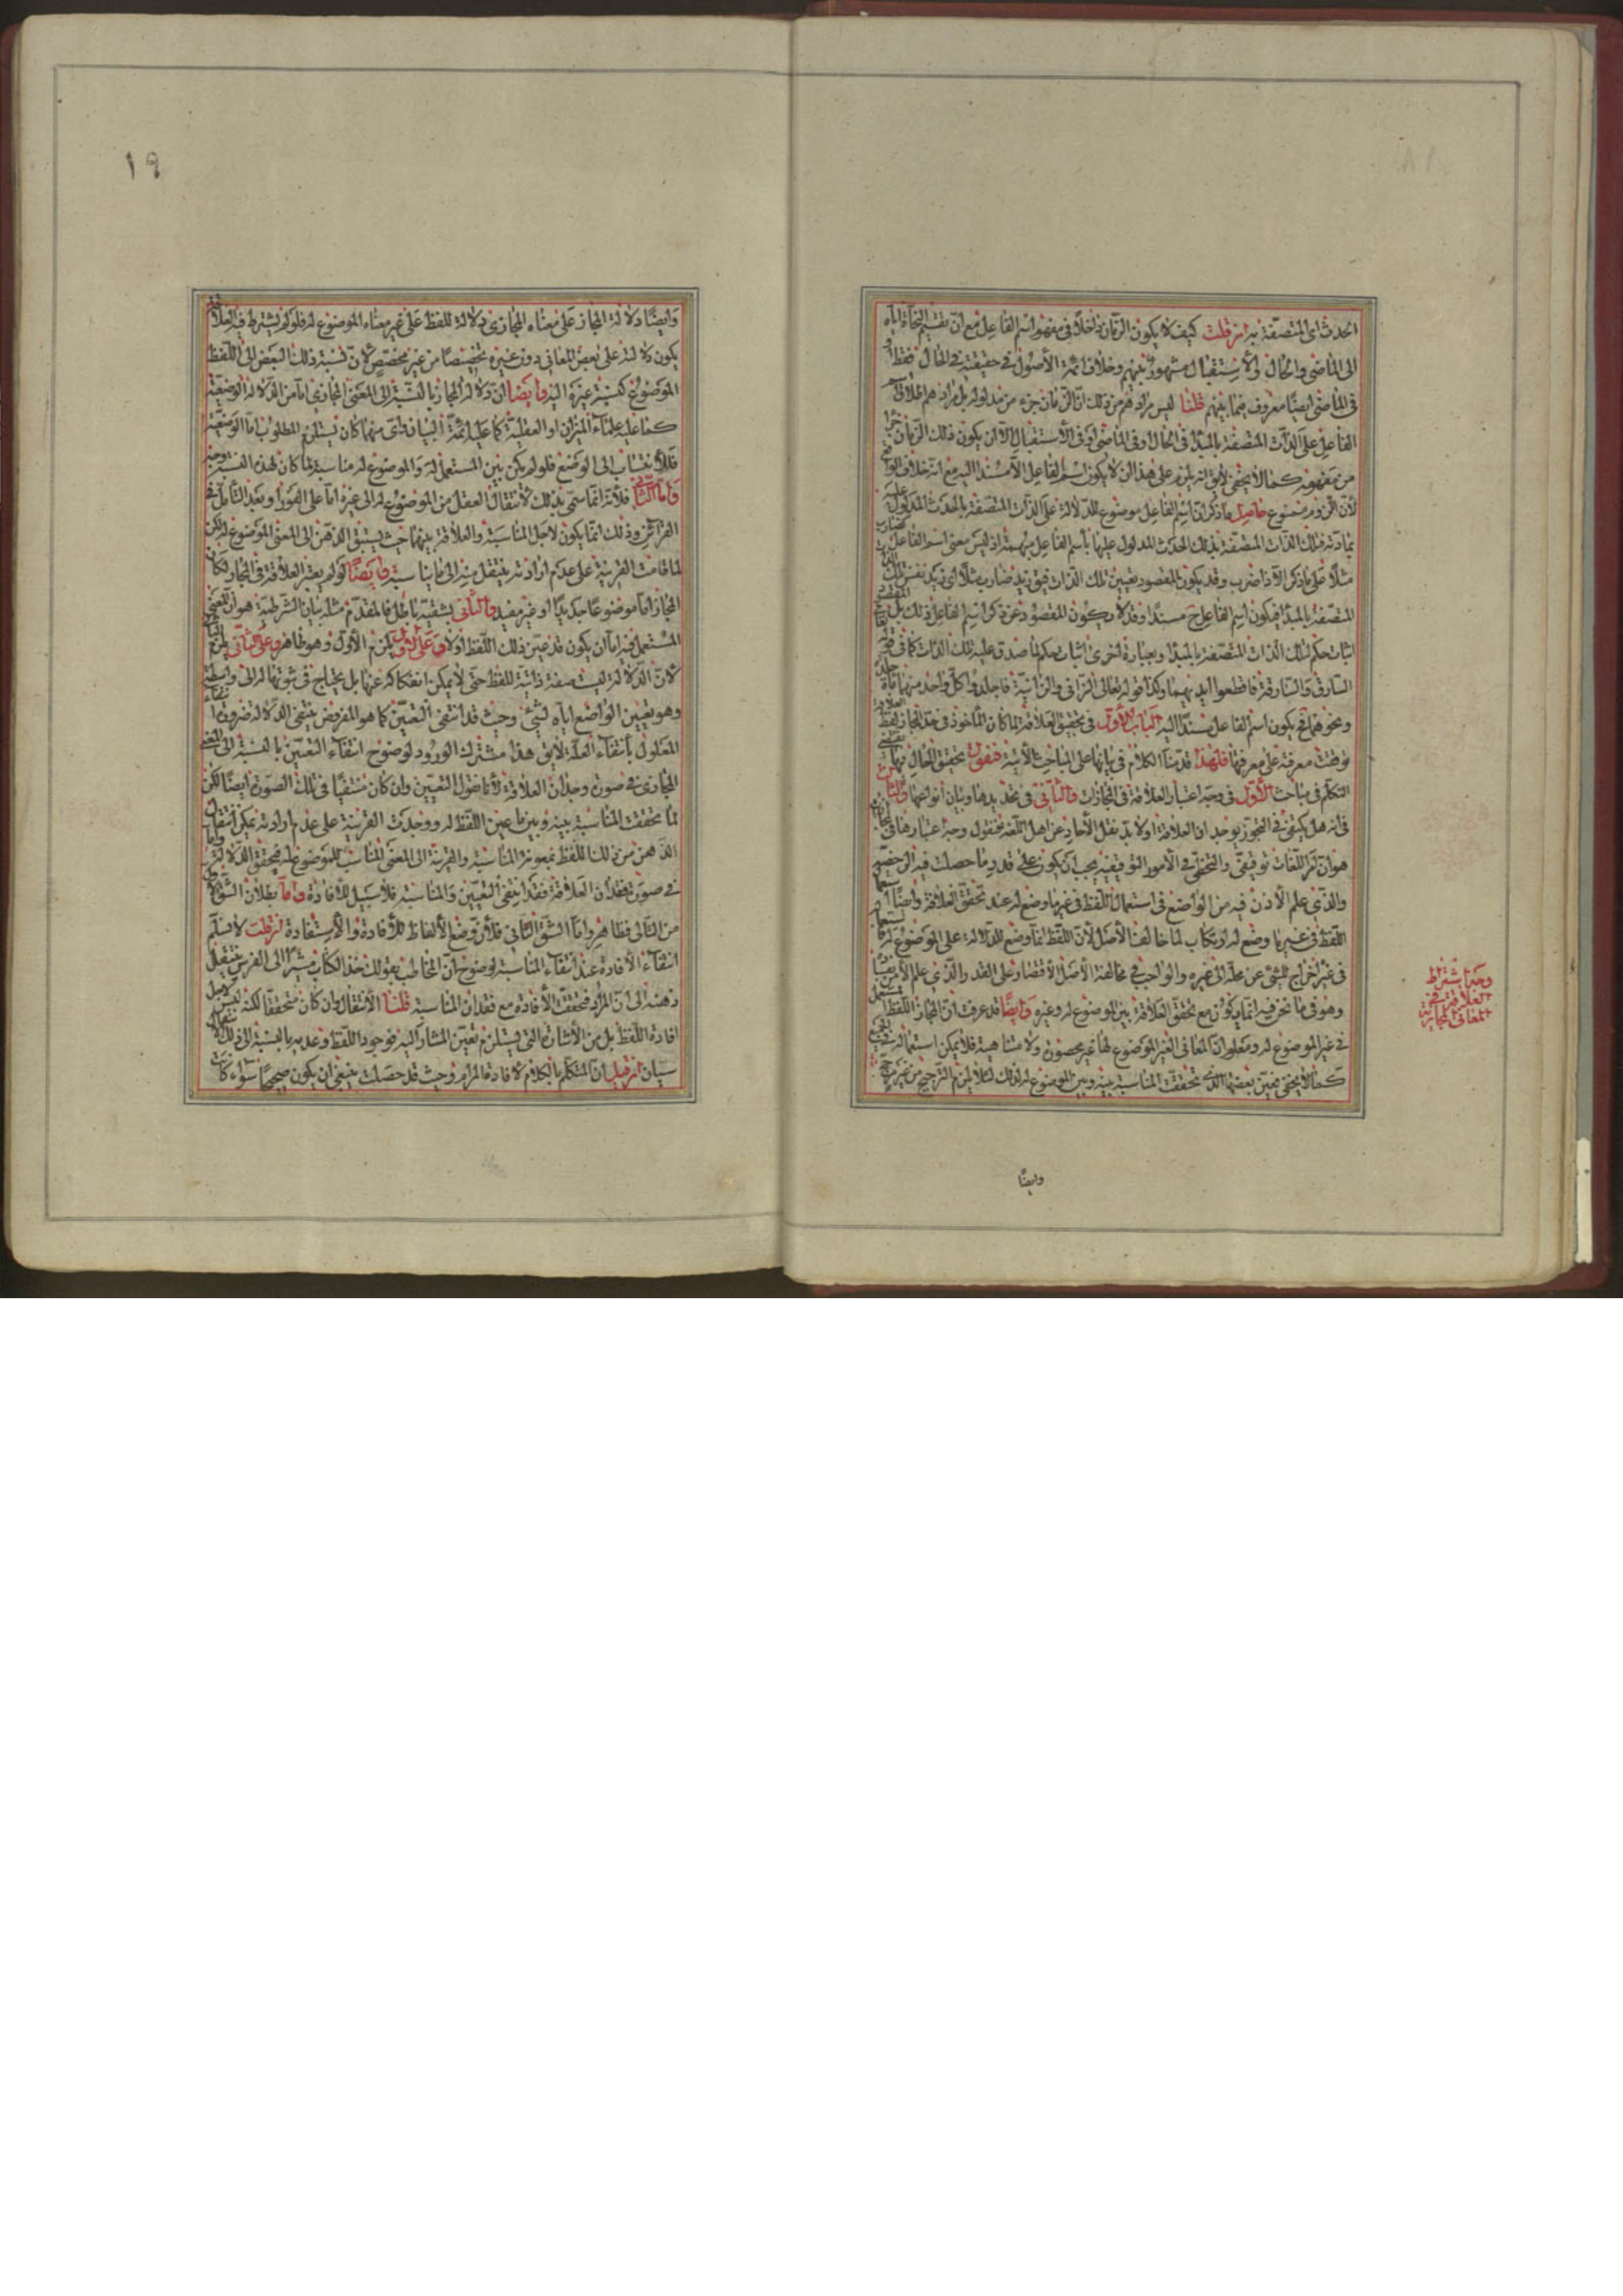 الحدث اى المتصفة به ان قلت كيف لا يكون الزمان داخلا فى مفهوم اسم الفاعل مع ان تقسيم النحاة اياه
الى الماضى والحال والاستقبال مشهور بينهم وخلاف ائمة الأصول فى حقيقته فى الحال فقط او
فى الماضى ايضا معروف فيما بينهم قلنا ليس مرادهم من ذلك ان الزمان جزء من مدلوله بل مرادهم اطلاق اسم
الفاعل على الذات المتصفة بالمبدء فى الحال وفى الماضى او فى الأستقبال الا ان يكون ذلك الزمان جزء
من مفهومه كما لا يخفى لايق انه يلزم على هذا ان لا يكون اسم الفاعل الا مسندا اليه مع انه خلاف الواقع
لأن اللزوم ممنوع حاصل ما ذكر ان اسم الفاعل موضوع للدلالة على الذات المتصفة بالحدث المدلول عليه
بمادته فتلك الذات المتصفة بذلك الحدث المدلول عليها بأسم الفاعل مبهمة اذ ليس معنى اسم الفاعل كضارب
مثلا على ما ذكر الا ذا ضرب وقد يكون المقصود تعيين تلك الذات فيق زيد ضارب مثلا اى زيد نفس تلك الذات
المتصفة بالمبدء فيكون اسم الفاعل ح مسندا وقد لا يكون المقصود من ذكر اسم الفاعل ذلك بل المقصود
اثبات حكم لتلك الذات المتصفة بالمبدء وبعبارة اخرى اثبات حكم لما صدق عليه تلك الذات كما فى قوله تعالى
السارق والسارقة فاقطعوا ايديهما وكذا قوله تعالى الزانى والزانية فاجلدوا كل واحد منهما مأة جلدة
ونحوهما فح يكون اسم الفاعل مسندا اليه الباب الأول فى تحقيق العلاقة لما كان المأخوذ فى حد المجاز لفظ العلاقة
توقفت معرفته على معرفتها فلهذا قدمنا الكلام فى بيانها على المباحث الأتية فنقول تحقيق المقال فيها يقتضى
التكلم فى مباحث الأول فى وجه اعتبار العلاقة فى المجازات والثانى فى تحديدها وبيان أنواعها والثالث
فى انه هل يكتفى فى التجوز بوجدان العلاقة او لا بد نقل الأحاد عن اهل اللغة فنقول وجه اعتبارها فى المجازات
هو ان امر اللغات توقيفى والتخطى فى الأمور التوقيفية يجب ان يكون على قدر ما حصلت فيه الرخصة
والذى علم الأذن فيه من الواضع فى استعمال اللفظ فى غير ما وضع له عند تحقق العلاقة وأيضا استعمال
اللفظ فى غير ما وضع له ارتكاب لما خالف الأصل لأن اللفظ انما وضع للدلالة على الموضوع له فاستعماله
فى غيره اخراج للشئ عن محله الى غيره والواجب فى مخالفة الأصل الأقتصار على القدر والذى علم الأذن يقينا
وهو فى ما نحن فيه انما يكون مع تحقق العلاقة بين الموضوع له وغيره وأيضا قد عرفت ان المجاز اللفظ المستعمل
فى غير الموضوع له ومعلوم ان المعانى الغير الموضوع لها غير محصورة ولا متناهية فلا يمكن استعماله فى الجميع
كما لا يخفى فتعين بعضها الذى تحققت المناسبة بينه وبين الموضوع له لذلك لئلا يلزم الترجيح من غير مرجح
وجه اشتراط
العلاقة فى
المعانى المجازية
وايضا
١٩
وأيضا دلالة المجاز على معناه المجازى دلالة للفظ على غير معناه الموضوع له فلو لم يشترط فيه العلاقة
يكون دلالته على بعض المعانى دون غيره تخصيصا من غير مخصص لأن نسبة ذلك البعض الى اللفظ
الموضوع كنسبة غيره اليه وايضا ان دلالة المجاز بالنسبة الى المعنى المجازى اما من الدلالة الوضعية
كما عليه علماء الميزان او العقلية كما عليه ائمة البيان واى منهما كان يستلزم المطلوب اما الوضعية
فلأنتساب الى الوضع فلو لم يكن بين المستعمل له والموضوع له مناسبة لما كان لهذه النسبة وجه
واما الثانى فلأنه انما سمى بذلك لأنتقال العقل من الموضوع له الى غيره اما على الفور او بعد التأمل فى
القرائن وذلك انما يكون لاجل المناسبة والعلاقة بينهما حيث يستبق الذهن الى المعنى الموضوع له لكن
لما قامت القرينة على عدم ارادته ينتقل منه الى ما يناسبه وايضا لو لم يعتبر العلاقة فى المجاز لكان
المجاز اما موضوعا جديدا او غير مفيد والتالى بشقيه باطل فالمقدم مثله بيان الشرطية هو ان المعنى
المستعمل فيه اما ان يكون قد عين ذلك اللفظ اولا وعلى الاول يلزم الأول وهو ظاهر وعلى الثانى يلزم الثانى
لأن الدلالة ليست صفة ذاتية للفظ حتى لا يمكن انفكاكه عنها بل يحتاج فى ثبوتها له الى واسطة
وهو تعيين الواضع اياه لشئ وحيث قد انتفى التعيين كما هو المفروض ينتفى الدلالة ضرورة انتفاء
المعلول بأنتفاء العلة لايق هذا مشترك الورود لوضوح انتفاء التعيين بالنسبة الى المعنى
المجازى فى صورة وجدان العلاقة لأنا نقول التعيين وان كان منتفيا فى تلك الصورة ايضا لكن
لما تحققت المناسبة بينه وبين ما عين اللفظ له ووجدت القرينة على عدم ارادته يمكن انتقال
الذهن من ذلك اللفظ بمعونة المناسبة والقرينة الى المعنى المناسب للموضوع له فيحقق الدلالة واما
فى صورة فقدان العلاقة فقد انتفى التعيين والمناسبة فلا سبيل للأفادة واما بطلان الشق الأول
من التالى فظاهر واما الشق الثانى فلأن وضع الألفاظ للأفادة والأستفادة ان قلت لا نسلم
انتفاء الأفادة عند انتفاء المناسبة لوضوح ان المخاطب بقولك خذ الكتاب مشيرا الى الفرس ينتقل
ذهنه الى ان المراد فتحققت الأفادة مع فقدان المناسبة قلنا الأنتقال وان كان متحققا لكنه ليس لاجل
افادة اللفظ بل من الأشارة التى يستلزم تعيين المشار اليه فوجود اللفظ وعدمه بالنسبة الى ذلك الانتقال
سيان ان قيل ان المتكلم بالكلام لأفادة المرام وحيث قد حصلت ينبغى ان يكون صحيحا سواء كانت